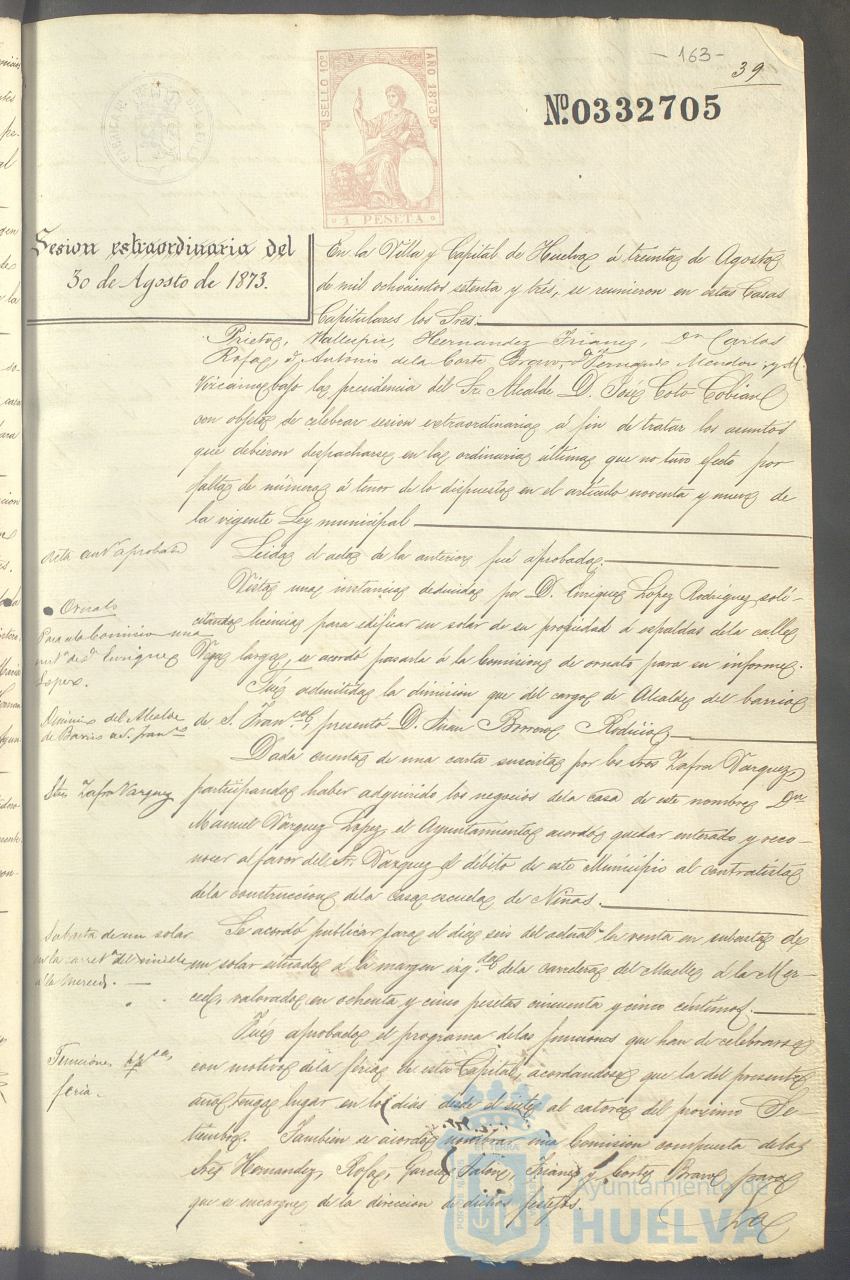 - 163 -
39
SELLO 10º
AÑO 1873
1 PESETA
Nº 0332705
Sesion estraordinaria del
30 de Agosto de 1873.
En la Villa y Capital de Huelva á treinta de Agosto
de mil ochocientos setenta y trés, se reunieron en estas Casas
Capitulares los Sres.
Prieto, Vallespin, Hernandez, Trianez, Dn Carlos
Rofa, D. Antonio de la Corte Bravo, D. Fernando Mendoz, y
Vizcaino bajo la presidencia del Sr Alcalde D. José Coto Cobian
con objeto de celebrar sesion extraordinaria á fin de tratar los asuntos
que debieron despacharse en las ordinarias últimas que no tuvo efecto por
falta de número á tenor de lo dispuesto en el artículo noventa y nueve de
la vigente Ley municipal
Acta antr aprobada
Leida el acta de la anterior fué aprobada.
Ornato
Pasa a la Comision una
inst.a de D. Enrique
Lopez.
Vista una instancia deducida por D. Enrique Lopez Rodriguez soli-
citando licencia para edificar en solar de su propiedad á espaldas de la calle
Vega larga, se acordó pasarla á la Comision de ornato para su informe.
Dimision del Alcalde
de Barrio de S. Fran.co
Fué admitida la dimision que del cargo de Alcalde del barrio
de S. Fran.co presentó D. Juan Borrero Rodicio
Stres Zafra Vazquez
Dada cuenta de una carta suscrita por los Sres Zafra Vazquez
participando haber adquirido los negocios de la casa de este nombre Dn
Manuel Vazquez Lopez, el Ayuntamiento acordó quedar enterado y reco-
nocer al favor del Sr. Vazquez el débito de este Municipio al contratista
de la construccion de la casa escuela de Niñas.
Subasta de un solar
en la carret.a del muelle
á la Merced.
Se acordó publicar para el dia seis del actual la venta en subasta de
un solar situado á la margen izq.da de la carretera del Muelle á la Mer-
ced, valorado en ochenta y cinco pesetas cincuenta y cinco céntimos.
Funciones
feria.
Fué aprobado el programa de las funciones que han de celebrarse
con motivo de la féria de esta Capital, acordandose que la del presente
año tenga lugar en los dias desde el siete al catorce del proximo Se
tiembre. Tambien se acordó nombrar una Comision compuesta de los
Sres Hernandez, Rofa, Garcia, Trianez y Corte Bravo para
que se encargue de la direccion de dichos festejos.
Ayuntamiento de
HUELVA